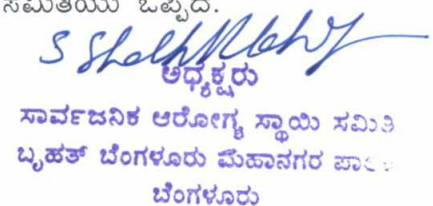 ಸಮಿತಿಯು ಒಪ್ಪಿದೆ.
ಅಧ್ಯಕ್ಷರು
ಸಾರ್ವಜನಿಕ ಆರೋಗ್ಯ ಸ್ಥಾಯಿ ಸಮಿತಿ
ಬೃಹತ್ ಬೆಂಗಳೂರು ಮಹಾನಗರ
ಬೆಂಗಳೂರು